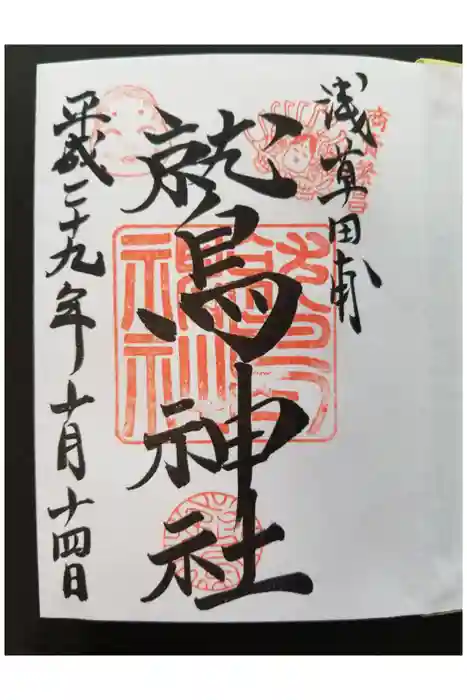 浅草田甫
鷲神社
平成二十九年十月十四日